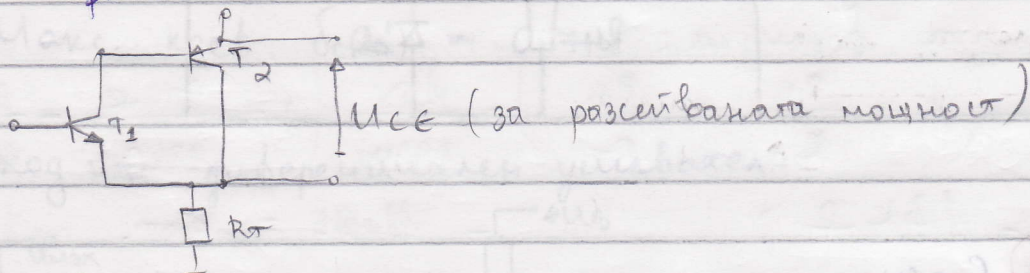 T2
T1
UCE (за разсейваната мощност)
RT